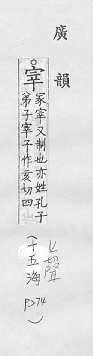 廣韻
宰
冢宰又制也亦姓孔子
弟子宰予作亥切四
(十五海 P274)